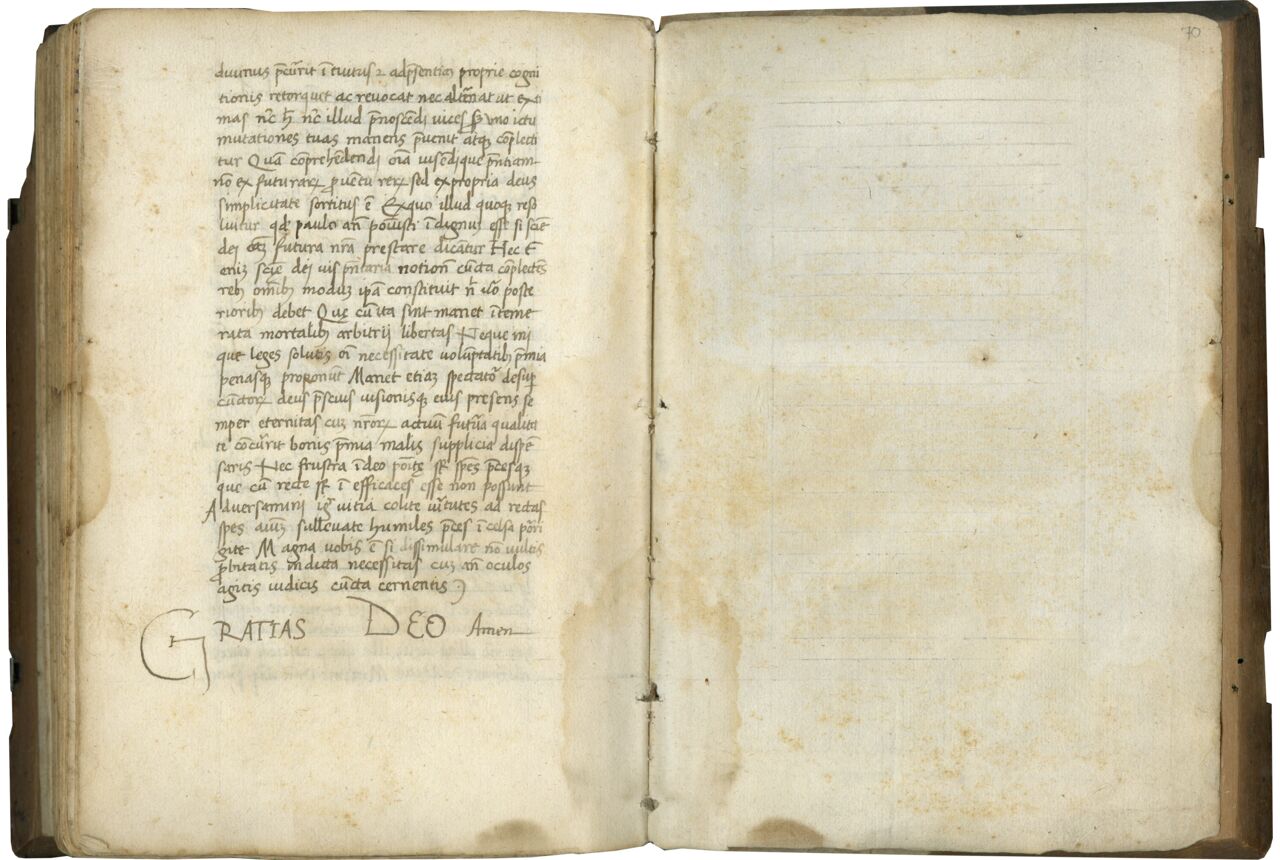 diuinus p̄cur̄rit ī tuitus ⁊ adp̄sentiaꝫ proprie cogni
tionis retorquet ac reuocat nec alt̄nat ut exis
mas nc̄ h̄ nc̄ illud p̄noscēdi uices sꝫ uno ictu
mutationes tuas manens p̄uenit atqꝫ cōplecti
tur Quā cōprehēdendi oīa uisēdique p̄ntiam
nō ex futuraꝝ ꝓuētu reꝝ sed ex propria deus
simplicitate sortitus ē Ex quo illud quoqꝫ reso
luitur qd̄ paulo an̄ posuisti īdignuꝫ esse si sciē
dei cāꝫ futura nr̄a prestare dicantur Hec ē
eniꝫ sciē dei uis p̄ntaria notion̄ cūcta cōplectēs
rebꝫ omībꝫ moduꝫ ip̄a constituit n̄l u͞o poste
rioribꝫ debet Quę cū ita sint manet īteme
rata mortalibꝫ arbitrii libertas Neque ini
que leges solutis oī necessitate uolūptatibꝫ p̄mia
penasqꝫ proponūt Manet etiaꝫ spectator̄ desup̄
cūctoꝝ deus p̄scius uisionisqꝫ eius presens se
mper eternitas cuꝫ nr̄oꝝ actuū futūa qualita
te cōcur̄rit bonis p̄mia malis supplicia dispē
sans Nec frustra ī deo posītę st̄ spes p̄cesqꝫ
que cū recte st̄ ī efficaces esse non possunt
Aduersamini igr̄ uitia colite uir̄tutes ad rectas
spes aīuꝫ sulleuate humiles p̄ces ī celsa por̄ri
gite Magna uobis ē si dissimulare nō uultis
ꝓbitatis indicta necessitas cuꝫ an̄ oculos
agitis iudicis cūcta cernentis :)
GRATIAS DEO Amen
70